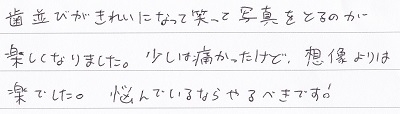 歯並びがきれいになって笑って写真をとるのが
楽しくなりました。少しは痛かったけど、想像よりは
楽でした。悩んでいるならやるべきです!